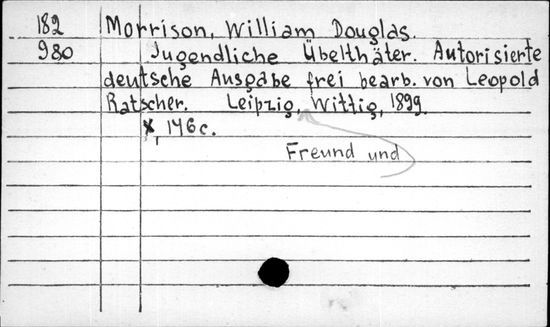 182 Morrison, William Douglas.
980 Jugendliche Übelthäter. Autorisierte
deutsche Ausgabe frei bearb. von Leopold
Ratscher. Leipzig, Wittig, 1899.
X, 146 c.
Freund und